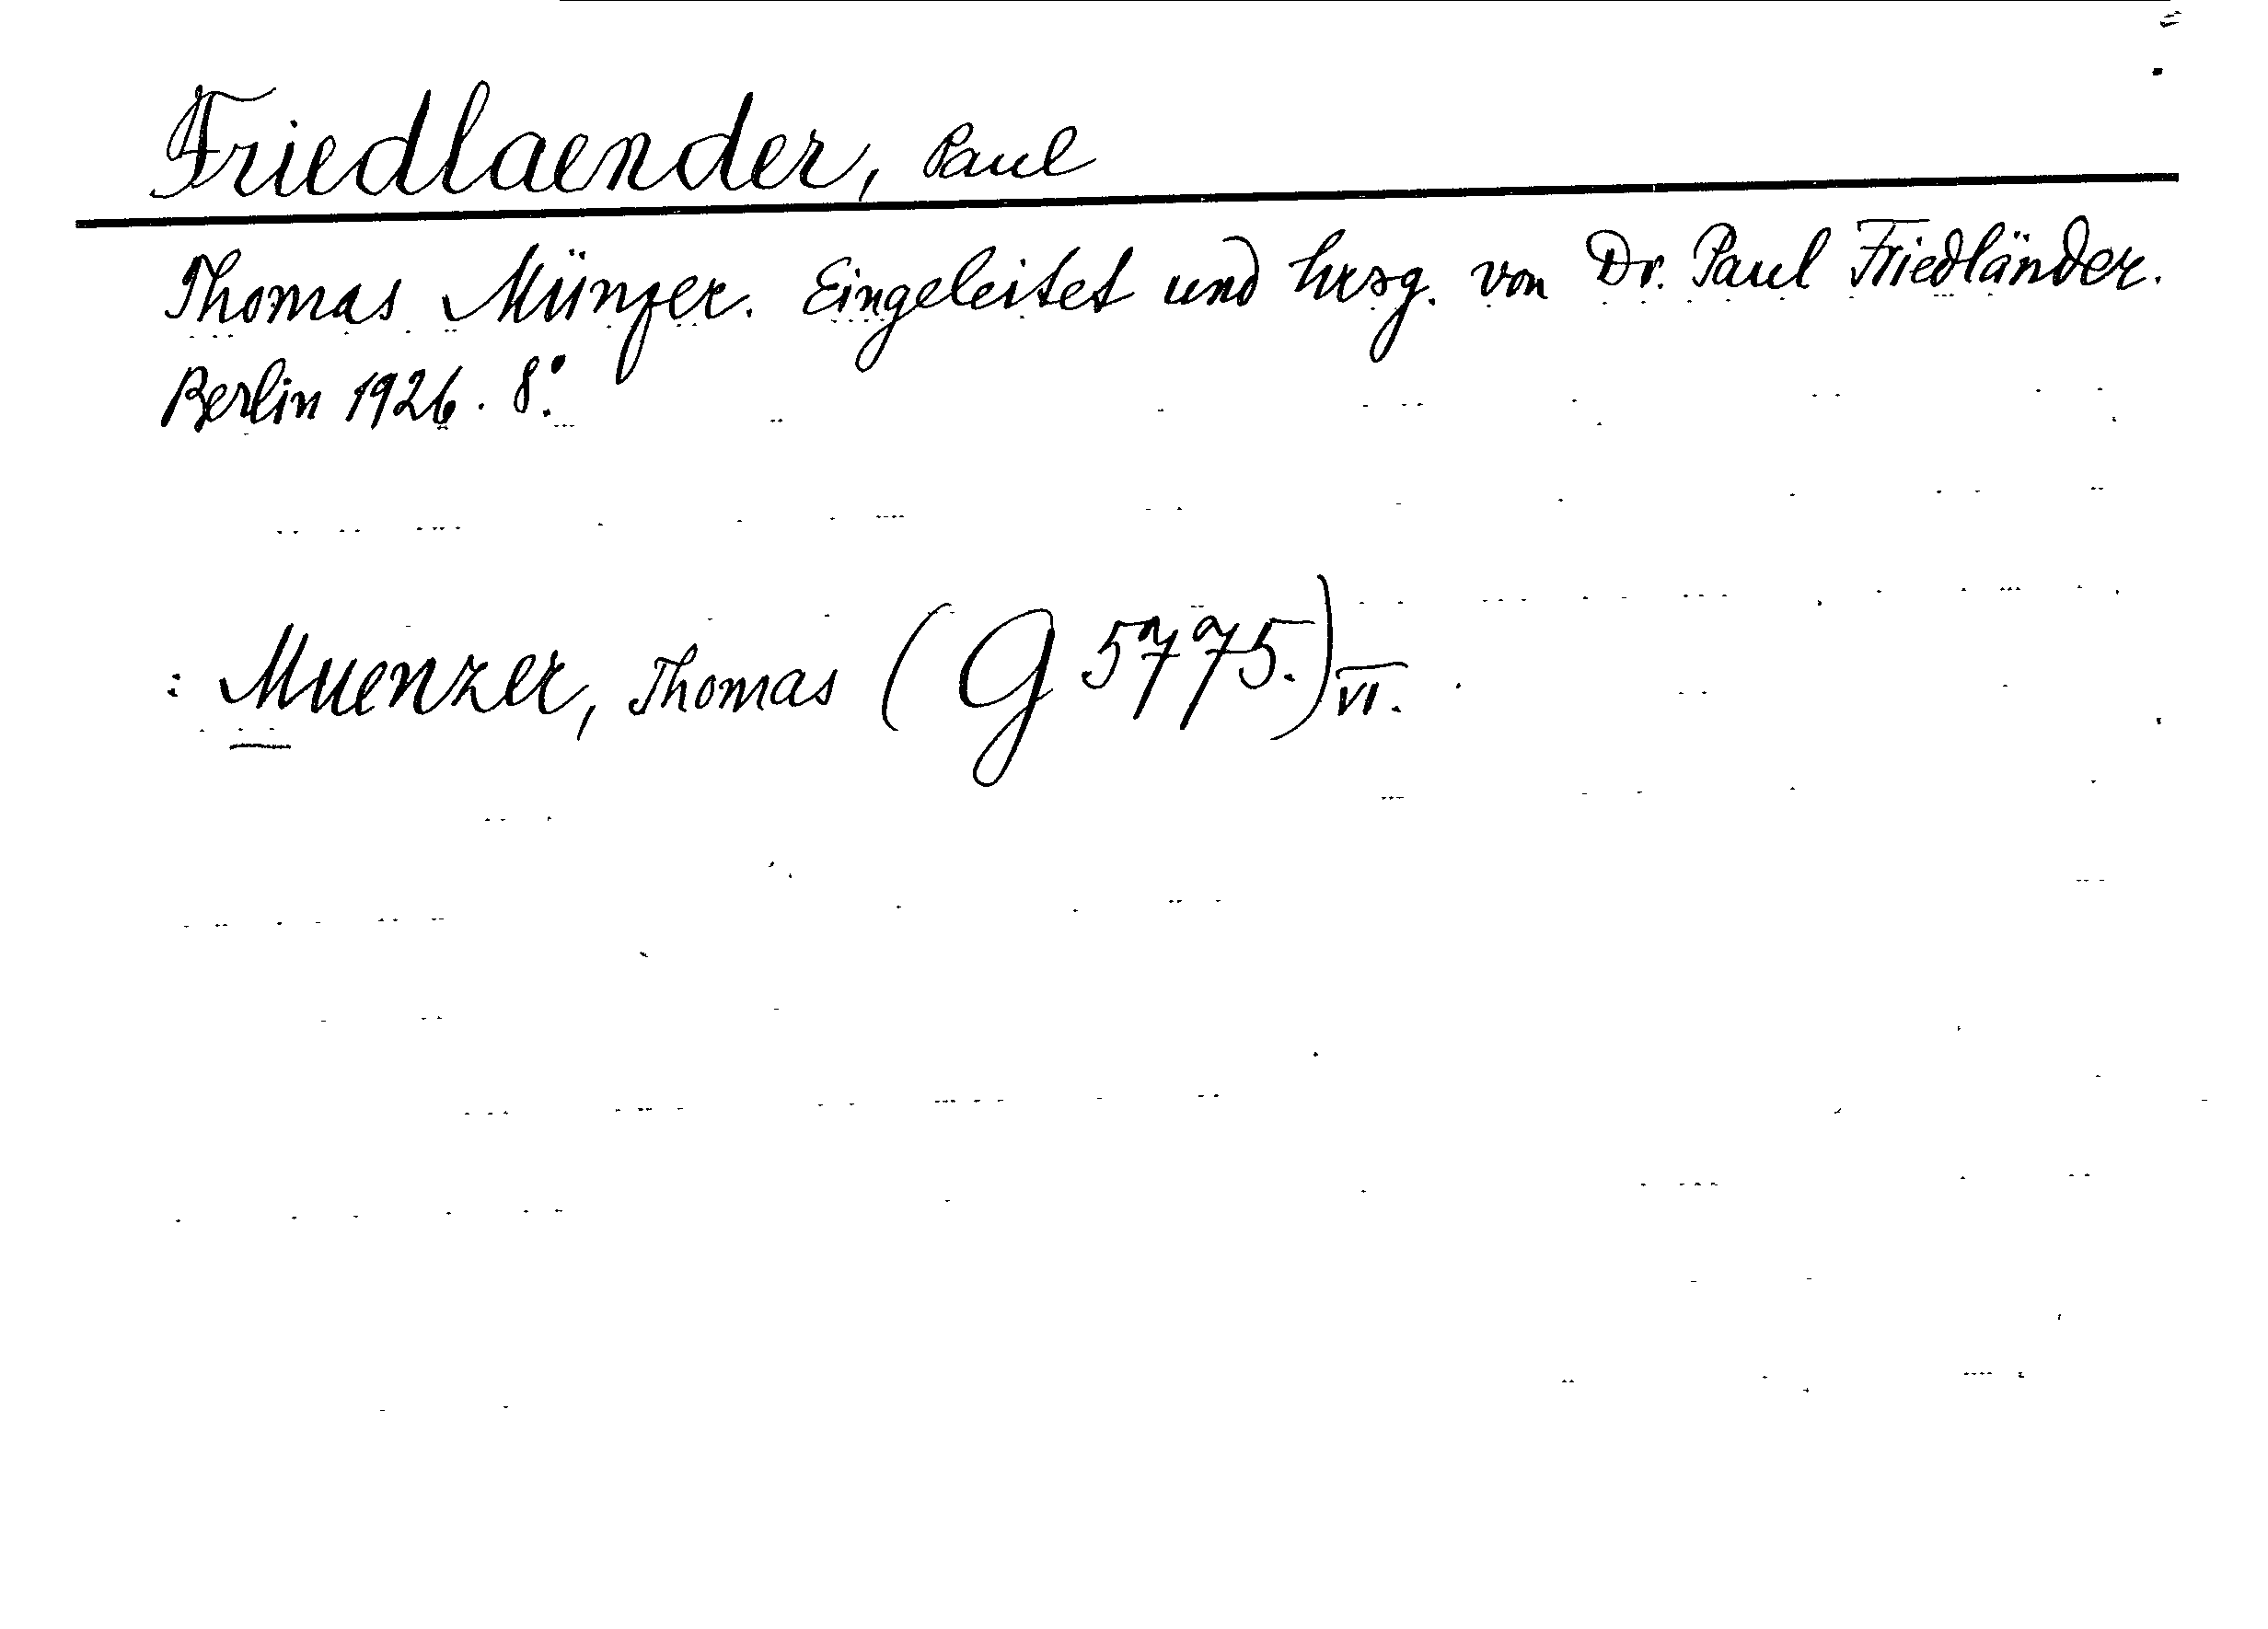 Friedlaender, Paul
Thomas Münzer. Eingeleitet und hrsg. von Dr. Paul Friedländer.
Berlin 1926. 8°.
: Muenzer, Thomas (G 5775.) VI.